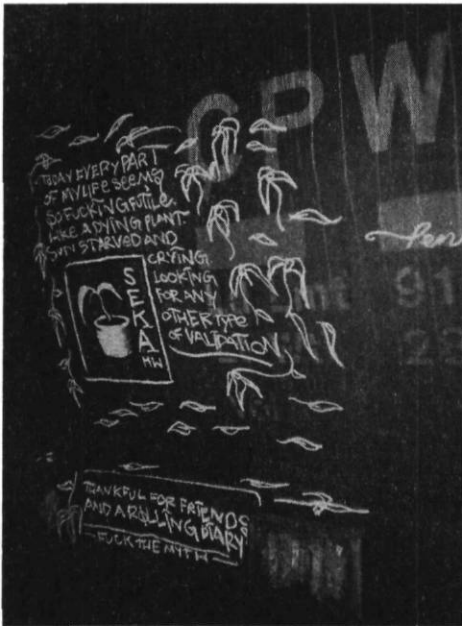 CPW
TODAY EVERY PART
OF MY LIFE SEEMS
SO FUCKING FUTILE.
LIKE A DYING PLANT
SUN STARVED AND
CRYING
LOOKING
FOR ANY
OTHER TYPE
OF VALIDATION
SEKA
HW
91
22
THANKFUL FOR FRIENDS
AND A ROLLING DIARY
FUCK THE MYTH